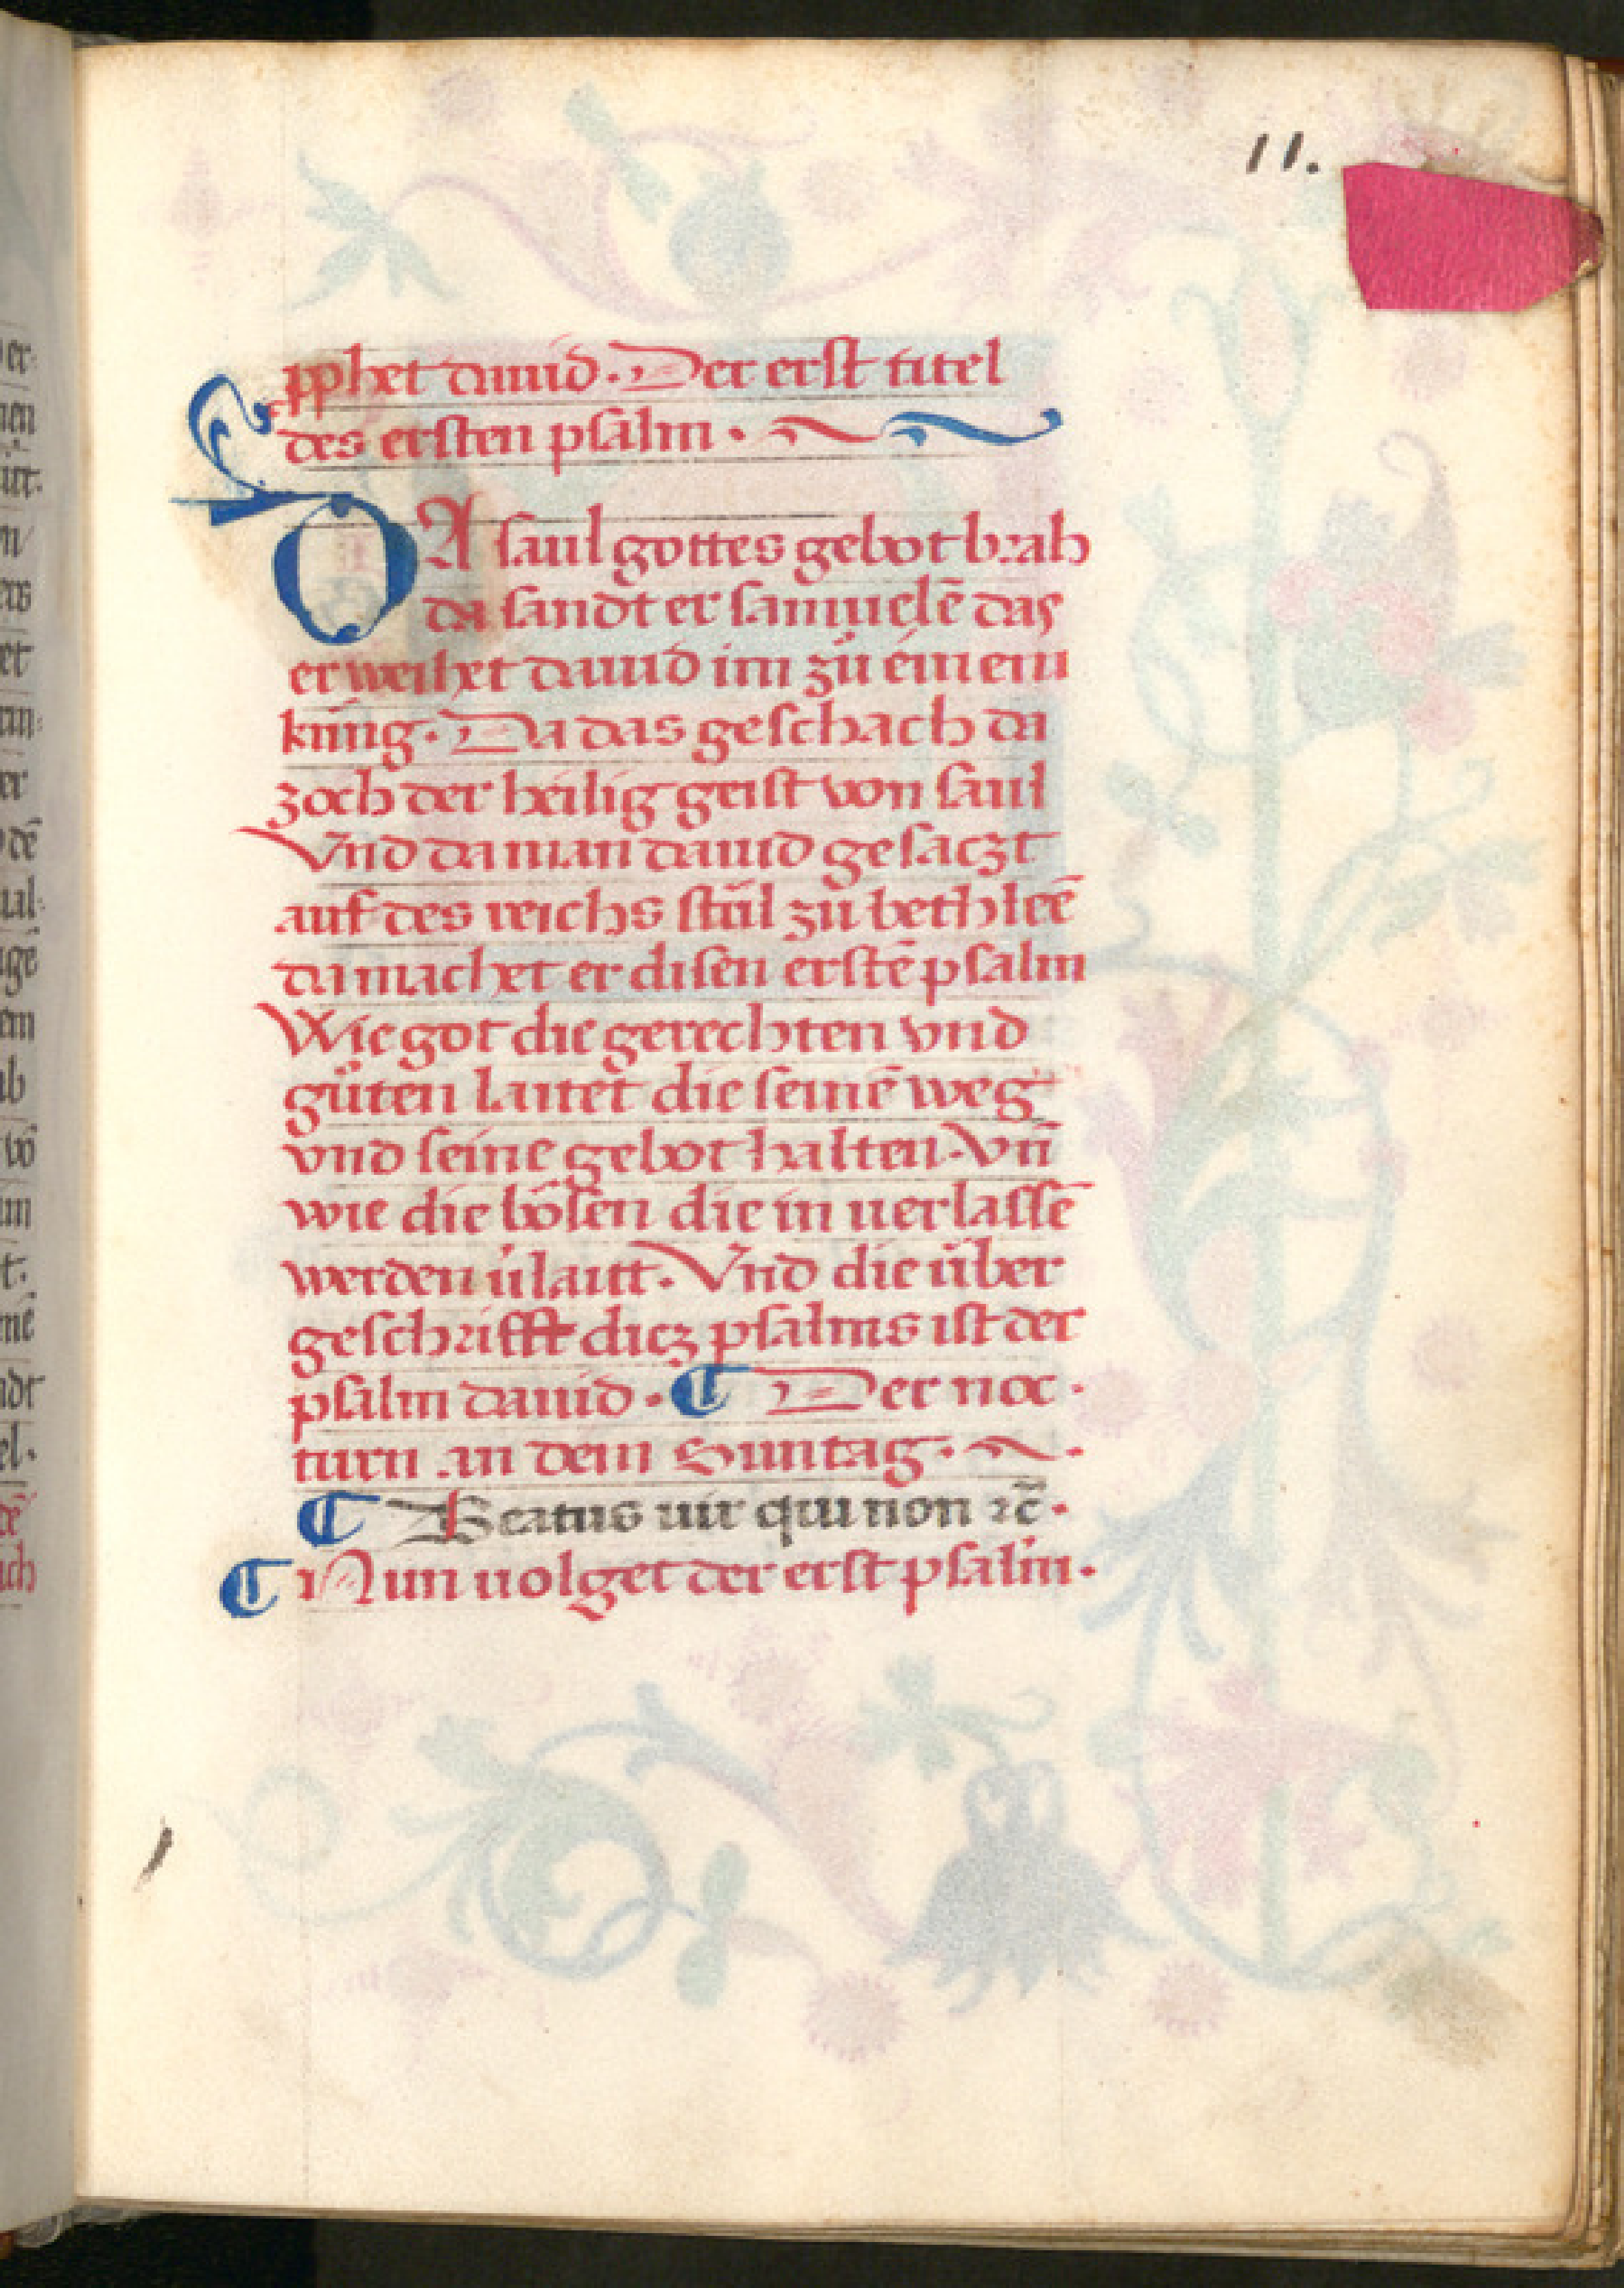 11.
ꝓphet dauid. Der erst titel
des ersten psalm.
DA saul gottes gebot brah
da sandt er samuelē das
er weihet dauid im zů einem
küng. Da das geschach da
zoch der heilig geist von saul
Vnd da man dauid gesaczt
auf des reichs stůl zů bethleē
da machet er disen erstē psalm
Wie got die gerechten vnd
gůten laitet die seinē weg
vnd seine gebot halten. Vn̄
wie die bösen die in uerlassē
werden ůlaitt. Vnd die über
geschrifft dicz psalms ist der
psalm dauid. ¶ Der noc
turn an dem Suntag.
¶ Beatus uir qui non ⁊c̄.
¶ Nun uolget der erst psalm.